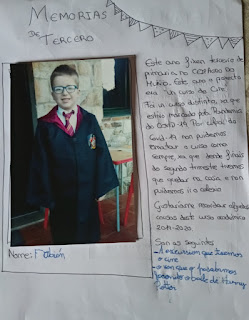 MEMORIAS
DE
TERCERO
Este ano fixen terceiro de
primaria no
Este ano o proxecto
era un curso de Cine.
Foi un curso distinto, xa que
estivo marcado pola Pandemia
do Covid-19. Por culpa do
Covid-19 non puidemos
rematar o curso como
sempre, xa que dende finais
do segundo trimestre tivemos
que quedar na casa e non
puidemos ir ó colexio.
Gustaríame recordar algunhas
cousas deste curso académico
2019-2020.
Son as seguintes:
A excursion que fixemos
o cine
o ben que o pasabamos
facendo o baile de Harry
Potter
Nome: Fabián